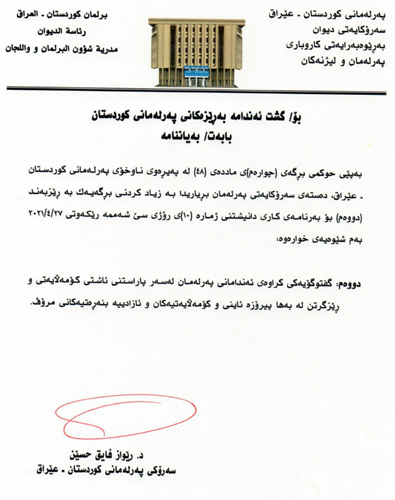 پەرلەمانی کوردستان - عێراق
سەرۆکایەتی دیوان
بەڕێوەبەرایەتی کاروباری
پەرلەمان و لیژنەکان
برلمان كوردستان - العراق
رئاسة الديوان
مديرية شؤون البرلمان و واللجان
بۆ/ گشت ئەندامە بەڕێزەکانی پەرلەمانی کوردستان
بابەت/ بەیاننامە
بەپێی حوکمی بڕگەی (چوارەم)ی ماددەی (٤٨) لە پەیڕەوی ناوخۆی پەرلەمانی کوردستان
ـ عێراق، دەستەی سەرۆکایەتی پەرلەمان بڕیاریدا بە زیاد کردنی بڕگەیەك بە ڕێزبەند
(دووەم) بۆ بەرنامەی کاری دانیشتنی ژمارە (١٠)ی رۆژی سێ شەممە رێکەوتی ٢٠٢١/٤/٢٧
بەم شێوەیەی خوارەوە:
دووەم: گفتوگۆیەکی کراوەی ئەندامانی پەرلەمان لەسەر پاراستنی ئاشتی کۆمەڵایەتی و
ڕێزگرتن لە بەها پیرۆزە ئاینی و کۆمەڵایەتیەکان و ئازادییە بنەڕەتیەکانی مرۆڤ.
د. رێواز فایق حسێن
سەرۆکی پەرلەمانی کوردستان - عێراق